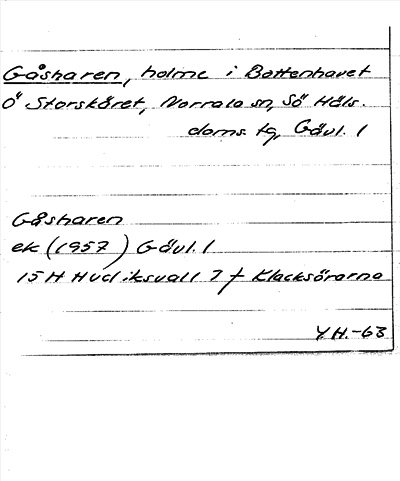 Gåsharen, holme i Bottenhavet
Ö Storskäret, Norrala sn, Sö Häls.
doms. tg, Gävl. l
Gåsharen
ek (1957) Gävl. l
15H Hudiksvall 7f Klacksörarna
Y.H.-63